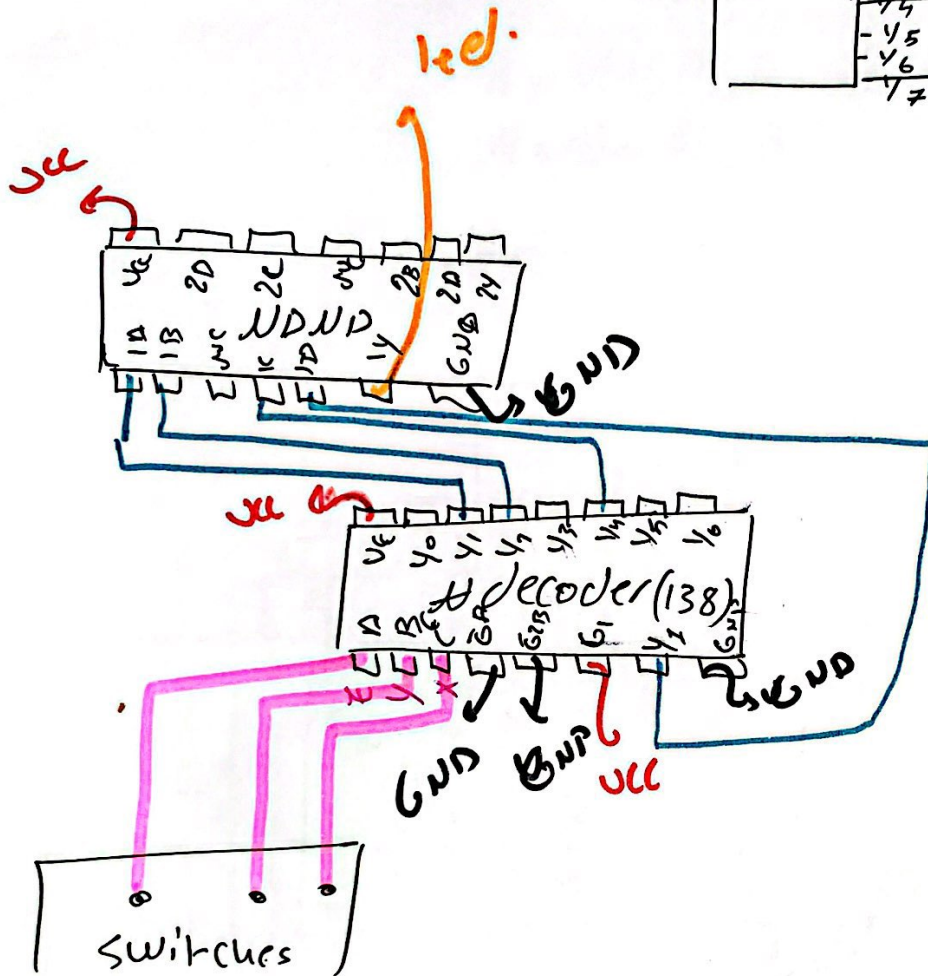 Y4
Y5
Y6
Y7
led.
VCC
VCC 2D 2C NC 2B 2D 2Y
NDND
1A 1B NC 1C 1D 1Y GND
GND
VCC
VC Y0 Y1 Y2 Y3 Y4 Y5 Y6
decoder (138)
A B C G2B G1 GND
Z Y X
GND GND VCC GND
switches